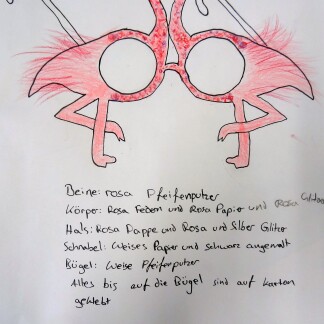 Beine: rosa Pfeifenputzer
Körper: Rosa Federn und Rosa Papier und Rosa Glitzer
Hals: Rosa Pappe und Rosa und Silber Glitzer
Schnabel: Weises Papier und schwarz angemalt
Bügel: Weise Pfeifenputzer
Alles bis auf die Bügel sind auf Karton
geklebt